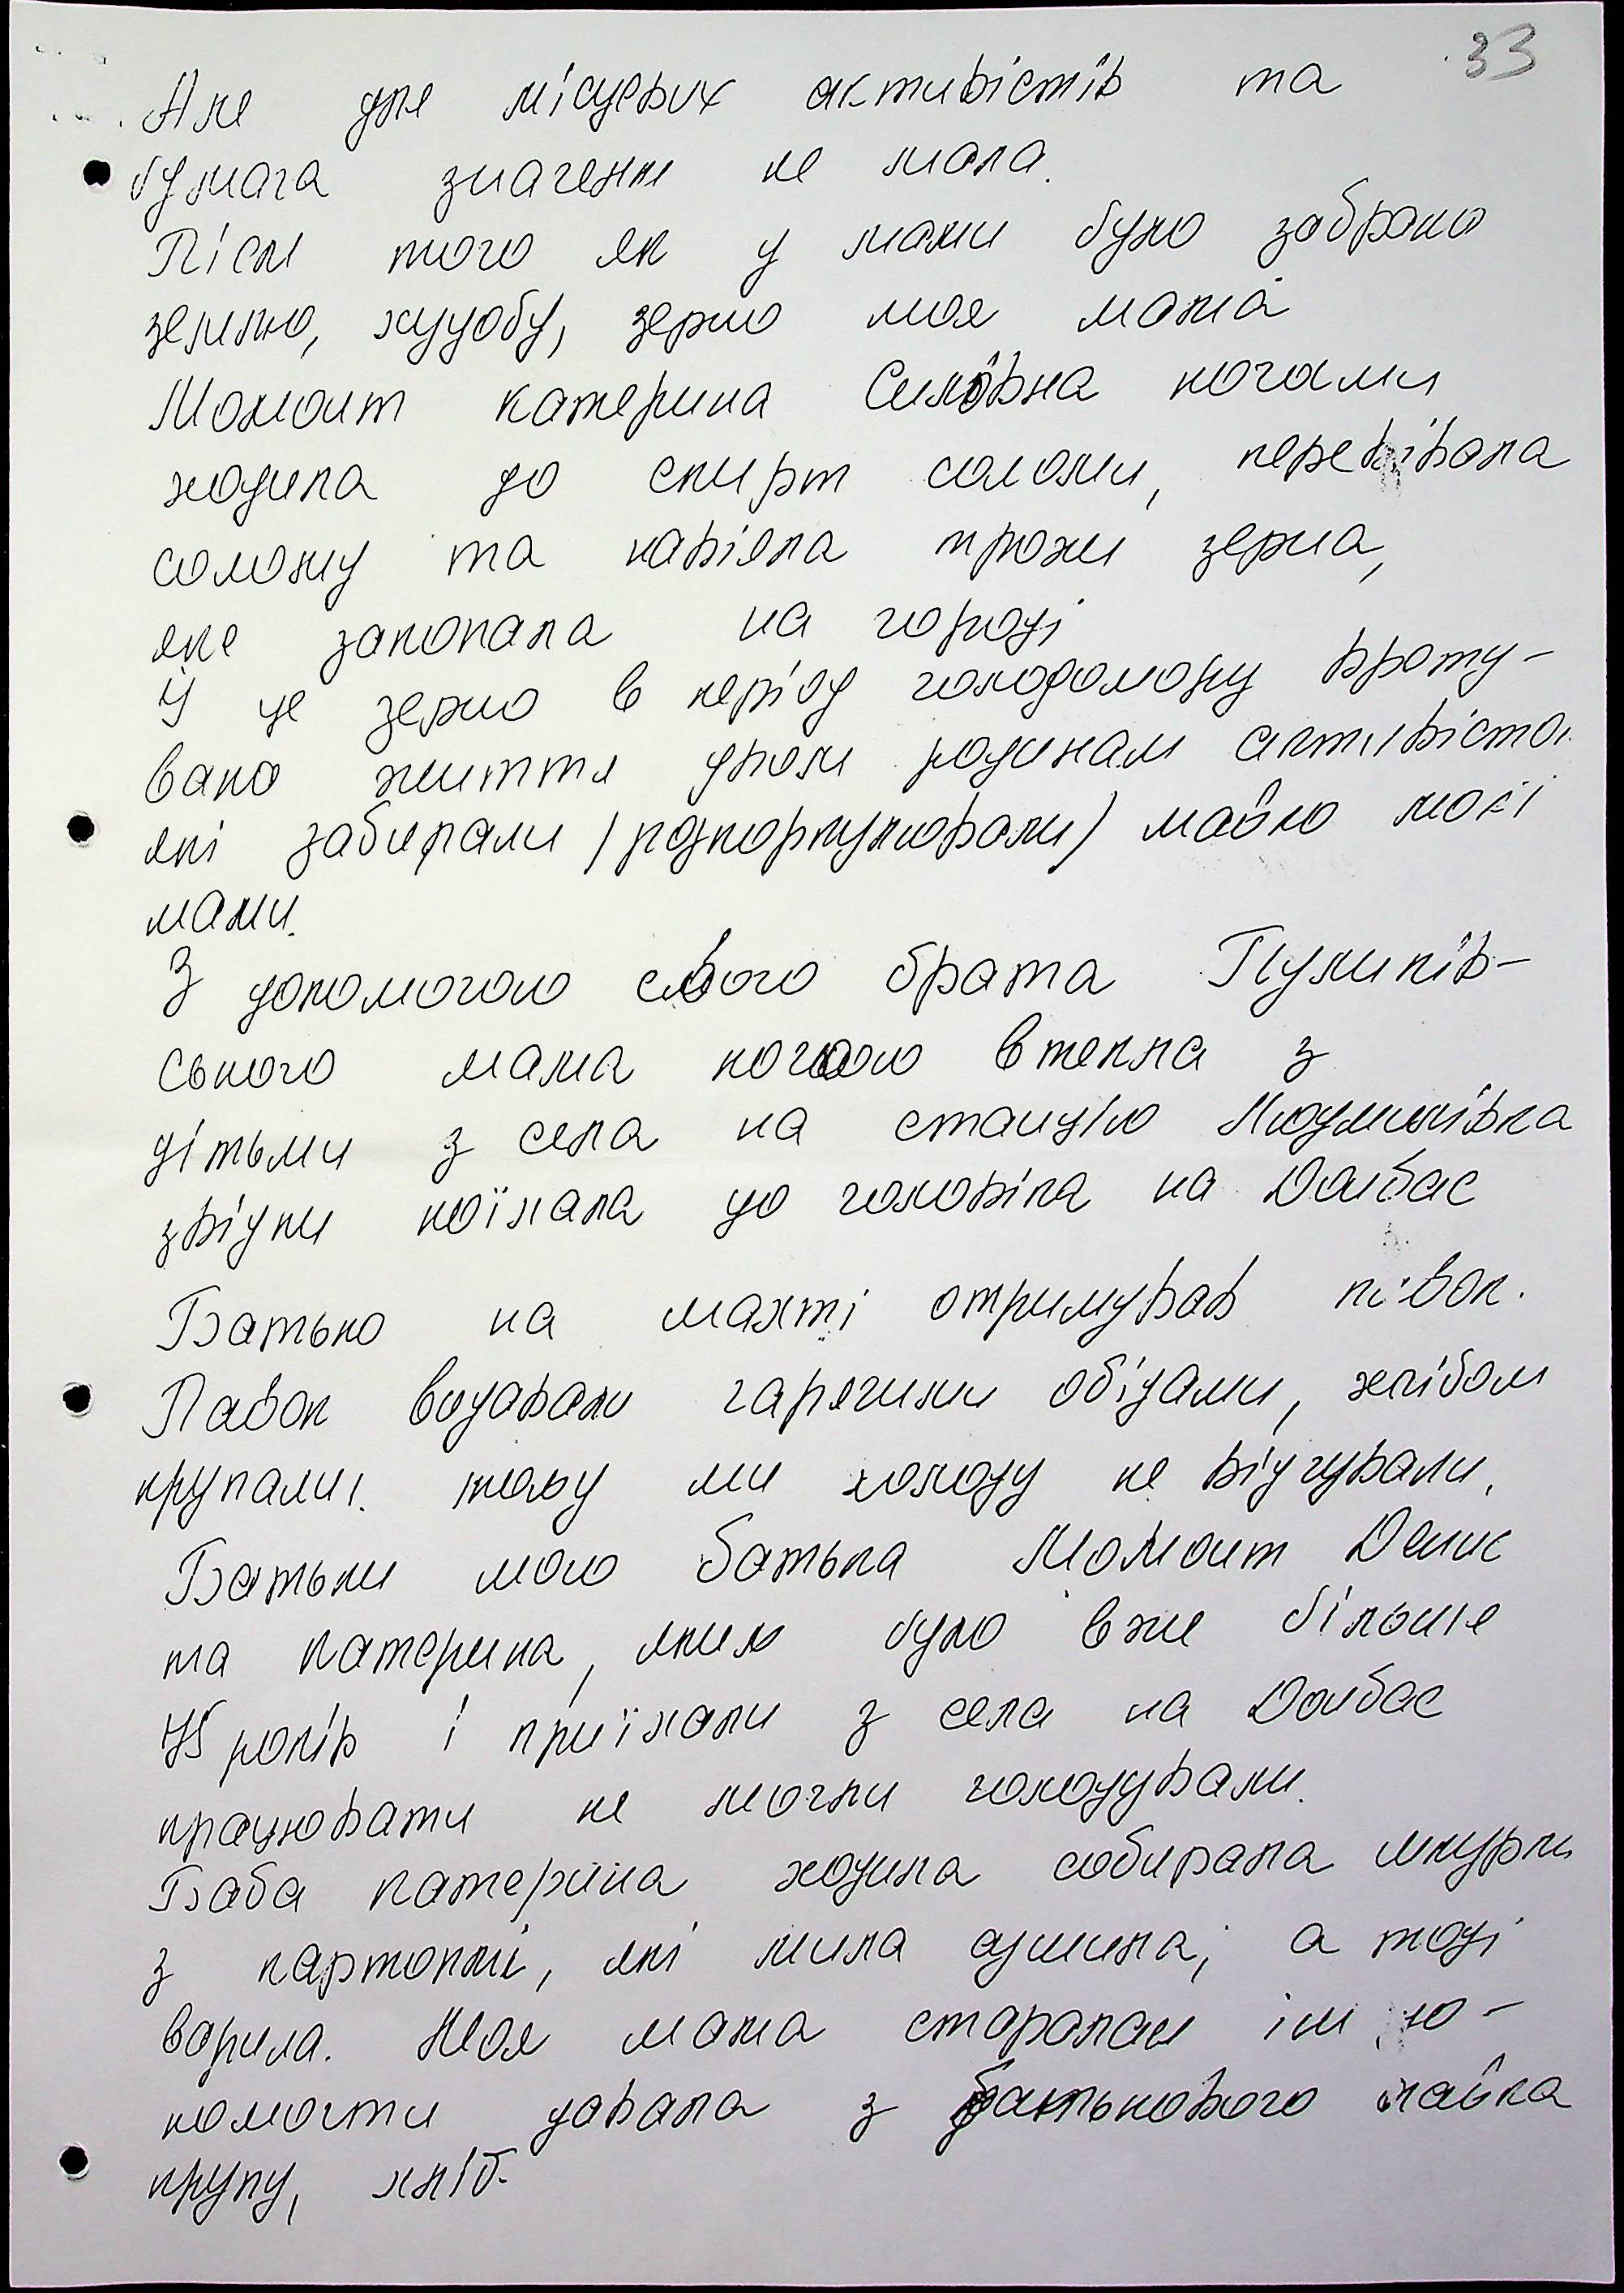 33
Але для місцевих активістів та
бумага значення не мала.
Після того як у мами було забрано
землю, худобу, зерно моя мама
Момот Катерина Силовна ночами
ходила до скирт соломи, перевівала
солому та навіяла трохи зерна,
яке закопала на городі
Й це зерно в період голодомору врату-
вало життя двом родинам активістов
які забирали /розкоркулювали/ майно моєї
мами.
З допомогою свого брата Пуликів-
ського мама ночою втекла з
дітьми з села на станцію Людмилівка
звідки поїхала до чоловіка на Донбас
Батько на шахті отримував пайок.
Пайок видавали гарячими обідами, хлібом
крупами. тому ми холоду не відчували.
Батьки мого батька Момот Денис
та Катерина, яким було вже більше
75 років і приїхали з села на Донбас
працювати не могли голодували.
Баба Катерина ходила собирала шкурки
з картоплі, які мила сушила, а тоді
варила. Моя мама старалася їм до-
помогти давала з батькового пайка
крупу, хліб.